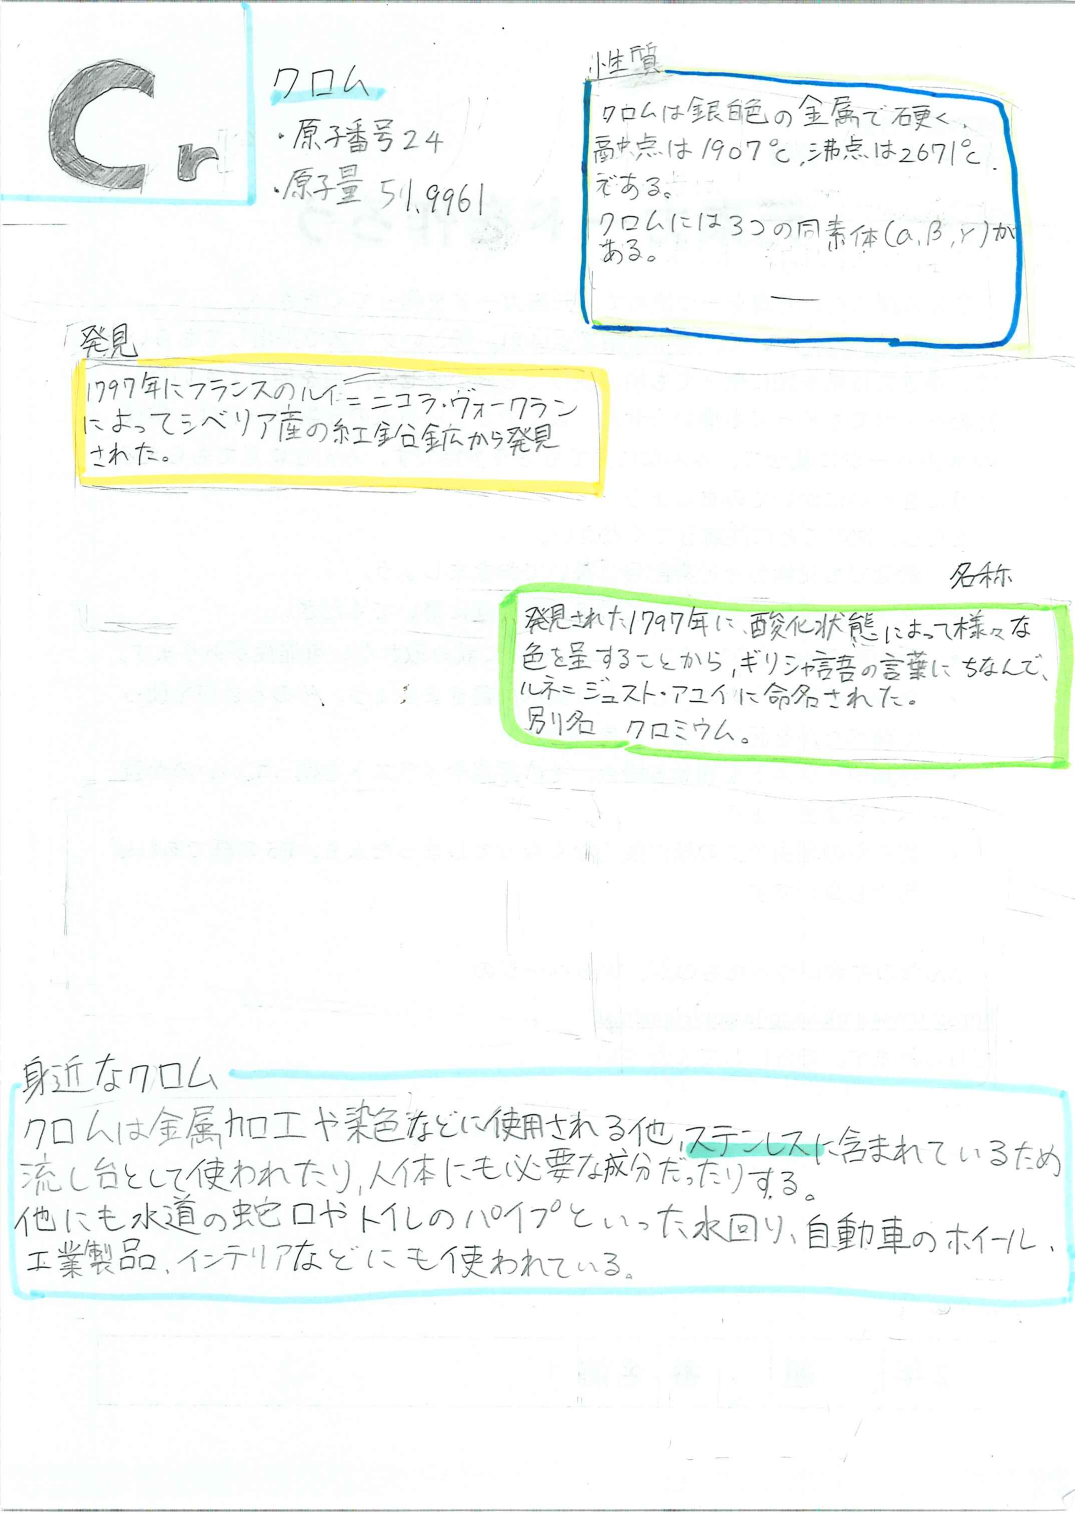 Cr
クロム
・原子番号24
・原子量 51.9961
性質
クロムは銀白色の金属で硬く、
融点は1907℃,沸点は2671℃
である。
クロムには3つの同素体(α,β,γ)が
ある。
発見
1797年にフランスのルイ=ニコラ・ヴォークラン
によってシベリア産の紅鉛鉱から発見
された。
名称
発見された1797年に、酸化状態によって様々な
色を呈することから,ギリシャ語の言葉にちなんで、
ルネ=ジュスト・アユイに命名された。
別名 クロミウム。
身近なクロム
クロムは金属加工や染色などに使用される他,ステンレスに含まれているため
流し台として使われたり,人体にも必要な成分だったりする。
他にも水道の蛇口やトイレのパイプといった水回り、自動車のホイール、
工業製品、インテリアなどにも使われている。